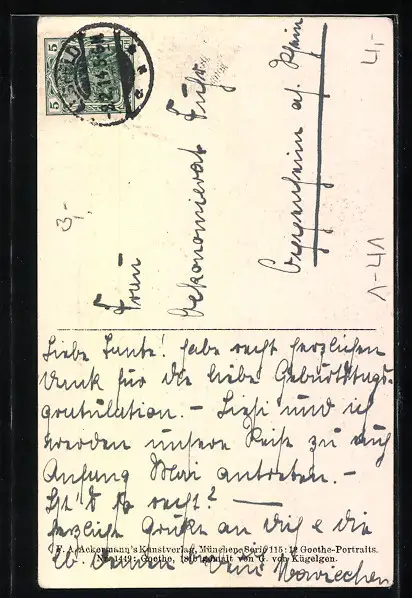 Frau
Oekonomierat Fuhr
Oppenheim a/ Rhein
3,-
4,-
1-41
5 5
Liebe Tante! habe recht herzlichen
Dank für die liebe Geburtstags-
gratulation. – Liesi und ich
werden unsere Reise zu euch
Anfang Mai antreten. –
Ist's so recht? –
herzliche Grüße an Dich & die
lb. Deine
F. A. Ackermann's Kunstverlag, München. Serie 115: 12 Goethe-Portraits.
Nr. 1449: Goethe, 1810 gemalt von G. von Kügelgen.